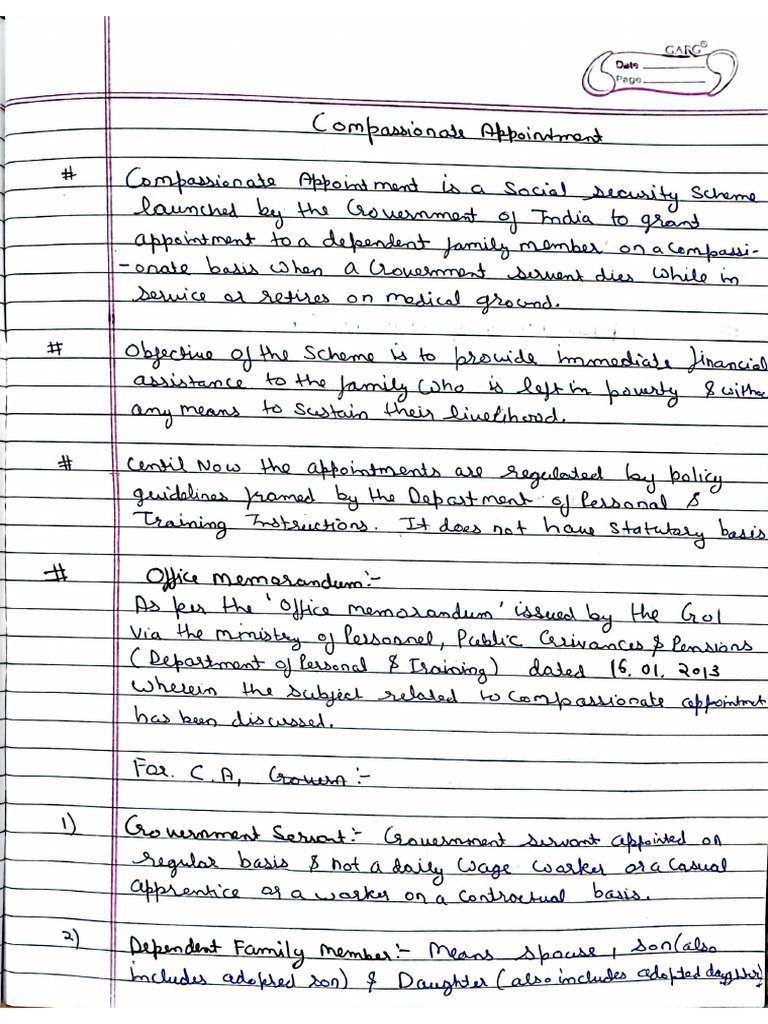 GARG®
Date
Page
Compassionate Appointment
# Compassionate Appointment is a Social security Scheme
launched by the Government of India to grant
appointment to a dependent family member on a compassi-
-onate basis when a Government servent dies while in
service or retires on medical ground.
# Objective of the Scheme is to provide immediate financial
assistance to the family who is left in poverty & witho
any means to sustain their livelihood.
# Until Now the appointments are regulated by policy
guidelines framed by the Department of Personal &
Training Instructions. It does not have statutary basis
# Office memorandum:-
As per the 'Office memorandum' issued by the GOI
via the ministry of Personnel, Public Grivances & Pensions
(Department of Personal & Training) dated 16.01.2013
wherein the subject related to compassionate appointment
has been discussed.
For. C.A, Govern:-
1) Government Servant:- Government servant appointed on
regular basis & not a daily wage worker or a casual
apprentice or a worker on a contractual basis.
2) Dependent Family member:- Means spouse, son (also
includes adopred son) & Daughter (also includes adopted daughter)